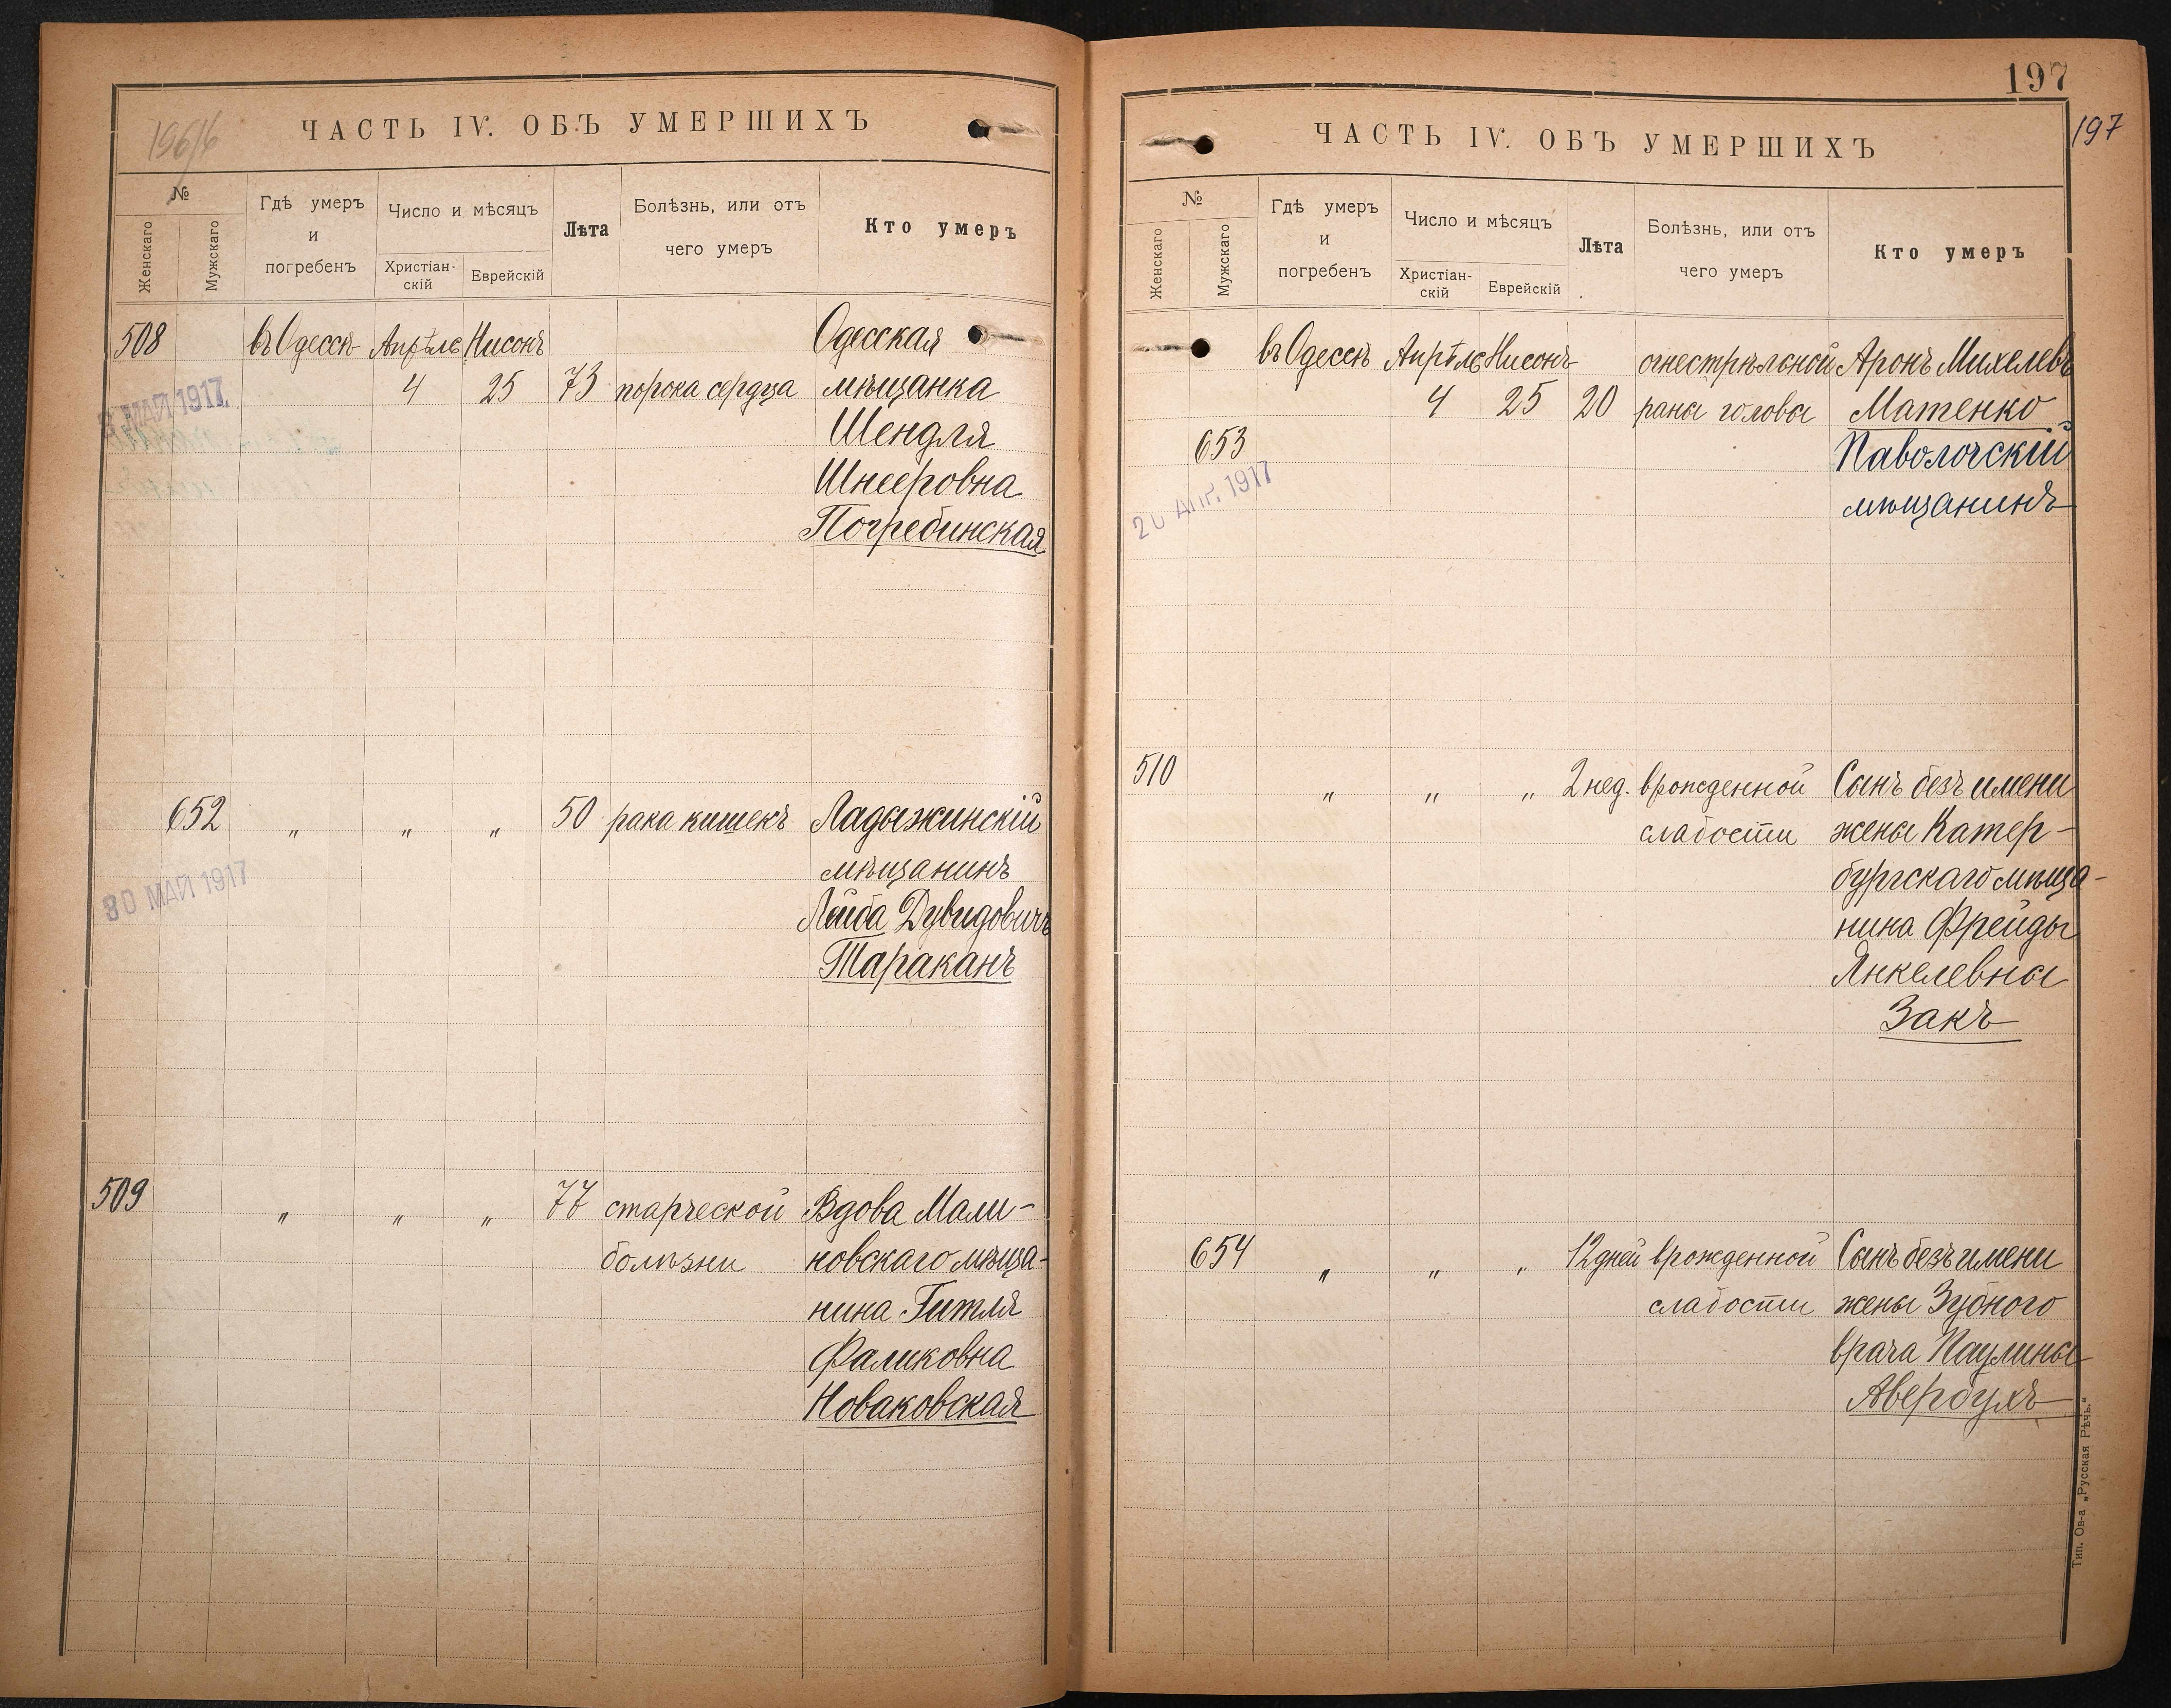 196/6
ЧАСТЬ IV. ОБЪ УМЕРШИХЪ
№
Женскаго
Мужскаго
Гдѣ умеръ
и
погребенъ
Число и мѣсяцъ
Христіан-
скій
Еврейскій
Лѣта
Болѣзнь, или отъ
чего умеръ
Кто умеръ
508 въ Одессѣ Апрѣлѣ Нисонъ Одесская
4 25 73 порока сердца мѣщанка
МАЙ 1917
Шендля
Шнееровна
Погребинская
652 " " " 50 рака кишекъ Ладыжинскій
мѣщанинъ
30 МАЙ 1917
Лейба Дувидовичъ
Тараканъ
509 " " " 77 старческой Вдова Мали-
болѣзни новскаго мѣща-
нина Гитля
Фаликовна
Новаковская
197
197
ЧАСТЬ IV. ОБЪ УМЕРШИХЪ
№
Женскаго
Мужскаго
Гдѣ умеръ
и
погребенъ
Число и мѣсяцъ
Христіан-
скій
Еврейскій
Лѣта
Болѣзнь, или отъ
чего умеръ
Кто умеръ
въ Одессѣ Апрѣлѣ Нисонъ огнестрѣльной Аронъ Михелевъ
4 25 20 раны головы Матенко
653 Паволочскій
20 АПР. 1917
мѣщанинъ
510 " " " 2 нед. врожденной Сынъ безъ имени
слабости жены Катер-
бургскаго мѣща-
нина Фрейды
Янкелевны
Закъ
654 " " " 12 дней врожденной Сынъ безъ имени
слабости жены Зубного
врача Паулины
Авербухъ
Тип. Ов-а „Русская Рѣчь."